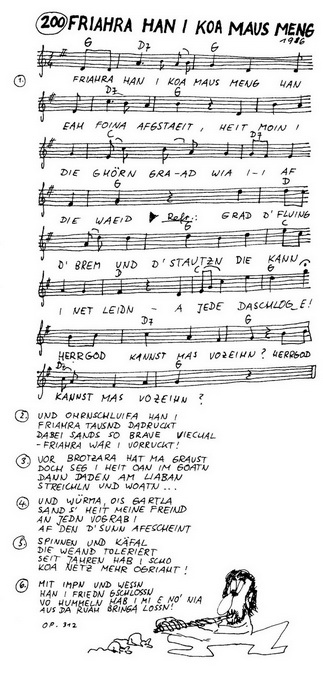 200 FRIAHRA HAN I KOA MAUS MENG
1986
G D7 G
1. FRIAHRA HAN I KOA MAUS MENG HAN
D7 G
EAH FOINA AFGSTAEIT, HEIT MOIN I
C D7
DIE GHÖRN GRA-AD WIA I-I AF
G D
DIE WAEID ▶ Refr.: GRAD D'FLUING
G C
D'BREM UND D'STAUTZN DIE KANN
D C G
I NET LEIDN - A JEDE DASCHLOG E!
D7 G
HERRGOD KANNST MAS VOZEIHN? HERRGOD
D7 G
KANNST MAS VOZEIHN?
2. UND OHRNSCHLUIFA HAN I
FRIAHRA TAUSND DADRUCKT
DABEI SANDS SO BRAVE VIECHAL
-FRIAHRA WAR I VORRUCKT!
3. VOR BROTZARA HAT MA GRAUST
DOCH SEG I HEIT OAN IM GOATN
DANN DADEN AM LIABAN
STREICHLN UND WOATN...
4. UND WÜRMA, OIS GARTLA
SAND S' HEIT MEINE FREIND
AN JEDN VOGRAB I
AF DEN D'SUNN AFESCHEINT
5. SPINNEN UND KÄFAL
DIE WEAND TOLERIERT
SEIT JAHREN HAB I SCHO
KOA NETZ MEHR OGRIAHT!
6. MIT IMPN UND WESSN
HAN I FRIEDN GSCHLOSSN
VO HUMMELN HAB I MI E NO' NIA
AUS DA RUAH BRINGA LOSSN!
OP. 312